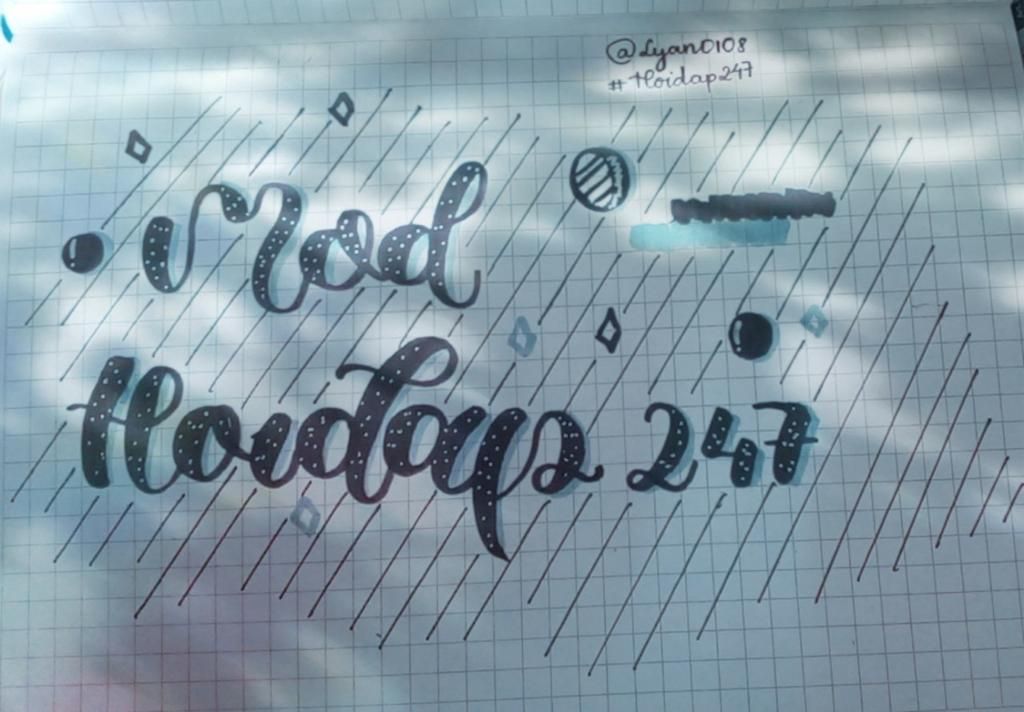 @Lyan0108
#Hoidap247
Mod
Hoidap 247